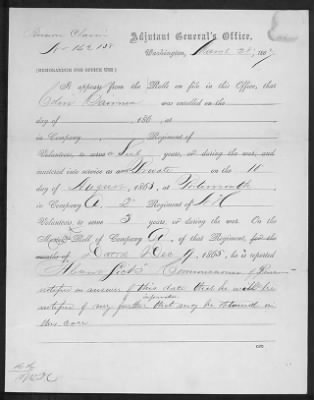 Pension Claim
No 162,138
Adjutant General's Office,
Washington, March 28, 1869
[MEMORANDUM FOR OFFICE USE.]
It appears from the Rolls on file in this Office, that
was enrolled on the
day of , 186 , at
in Company , Regiment of
Volunteers, to serve years, or during the war, and
mustered into service as a Private on the 10
day of August, 1863, at Portsmouth,
in Company A, 2" Regiment of N H
Volunteers, to serve 3 years, or during the war. On the
Muster Roll of Company A, of that Regiment, for the
months of Dated Dec 9, 1865, he is reported
Absent Sick" Commissioner of Pensions
notified in answer of this date that he will be
notified if any further information that may be obtained in
this case